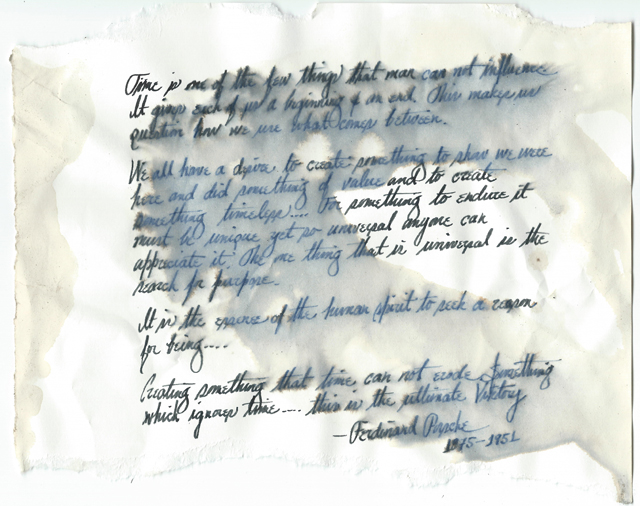 Time is one of the few things that man can not influence
It gives each of us a beginning & an end. This makes us
question how we use what comes between.
We all have a desire to create something to show we were
here and did something of value and to create
something timeless.... For something to endure it
must be unique yet so universal anyone can
appreciate it. The one thing that is universal is the
search for purpose.
It is the essence of the human spirit to seek a reason
for being....
Creating something that time can not erode Something
which ignores time.... this is the ultimate Viktory
—Ferdinand Porsche
1875-1951